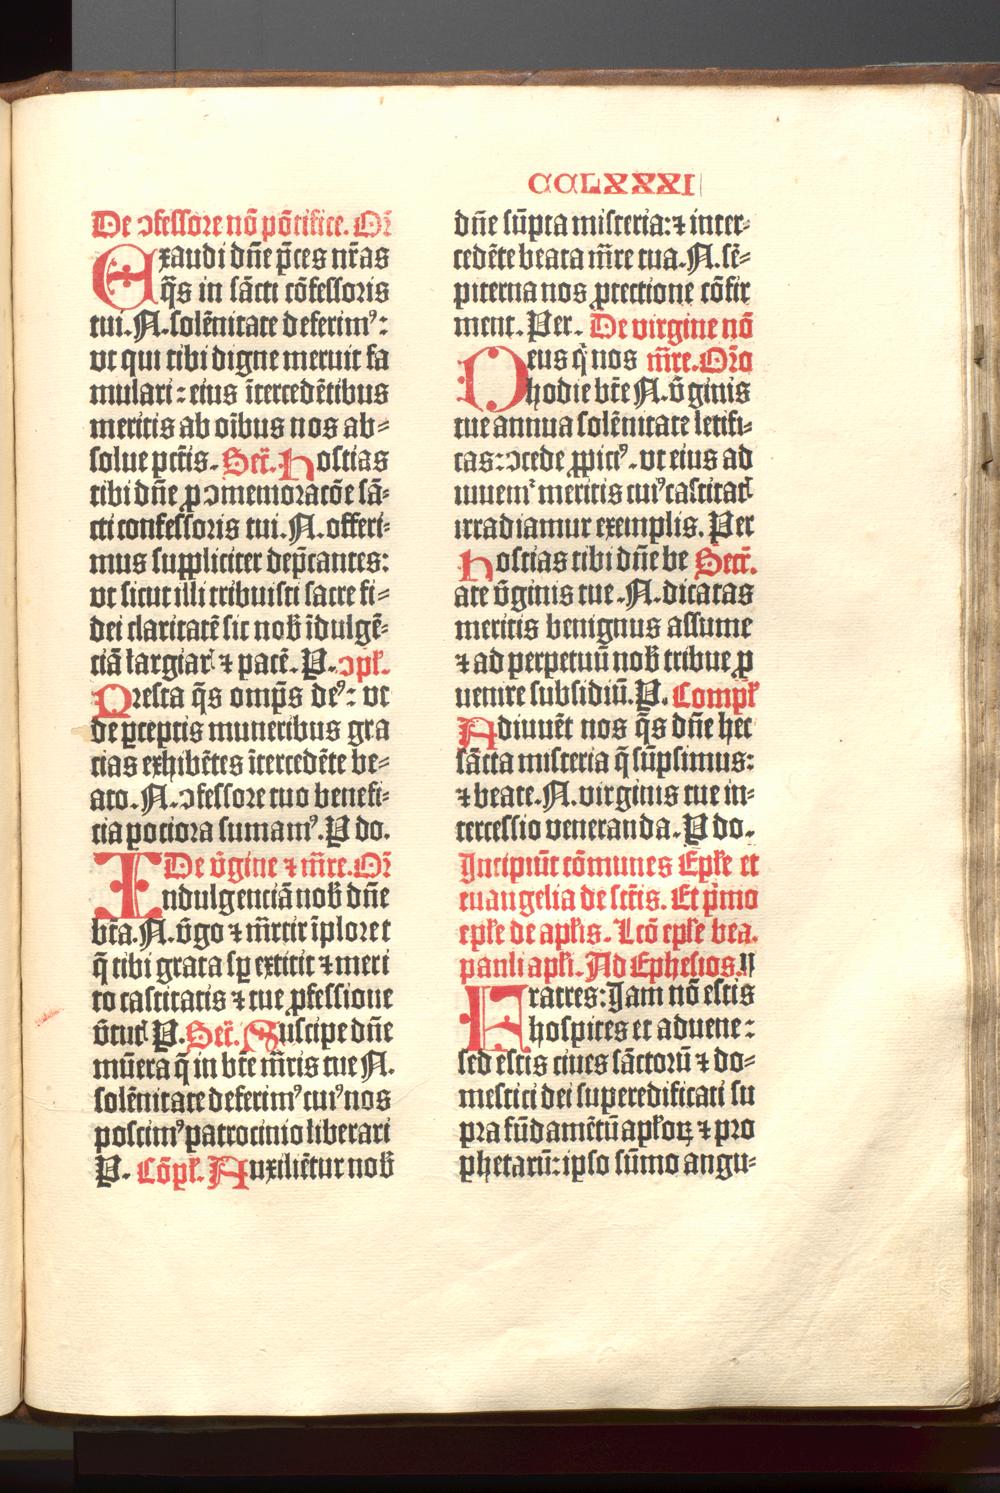 CCLXXXI
De ɔfessore nō pōtifice. Or̄
Exaudi dn̄e p̄ces nr̄as
q̄s in sācti cōfessoris
tui. N. solēnitate deferimꝰ:
vt qui tibi digne meruit fa
mulari: eius ītercedētibus
meritis ab oībus nos ab⸗
solue pctīs. Secr̄. Hostias
tibi dn̄e ꝓ ɔmemoracōe sā⸗
cti confessoris tui. N. offeri⸗
mus suppliciter dep̄cantes:
vt sicut illi tribuisti sacre fi⸗
dei claritatē sic nob̄ īdulgē⸗
ciā largiar̄ ⁊ pacē. P. ɔpl̄.
Presta q̄s omp̄s deꝰ: vt
de ꝑceptis muneribus gra
cias exhibētes ītercedēte be⸗
ato. N. ɔfessore tuo benefi⸗
cia potiora sumamꝰ. P do.
De v̄gine ⁊ mr̄e. Or̄
Indulgenciā nob̄ dn̄e
bt̄a. N. v̄go ⁊ mr̄tir īploret
q̄ tibi grata sꝑ extitit ⁊ meri
to castitatis ⁊ tue ꝓfessione
v̄tut̄ P. Secr̄. Suscipe dn̄e
mūera q̄ in bt̄e mr̄tis tue N.
solēnitate deferimꝰ cuiꝰ nos
poscimꝰ patrocinio liberari
P. Cōpl̄. Auxiliētur nob̄
dn̄e sūpta misteria: ⁊ inter⸗
cedēte beata mr̄e tua. N. sē⸗
piterna nos ꝓtectione cōfir
ment. Per. De virgine nō
Deus q̄ nos mr̄e. Or̄o
hodie bt̄e N. v̄ginis
tue annua solēnitate letifi⸗
cas: ɔcede ꝓpiciꝰ. vt eius ad
iuuemʳ meritis cuiꝰ castitat̄
irradiamur exemplis. Per
Hostias tibi dn̄e be Secr̄.
ate v̄ginis tue. N. dicatas
meritis benignus assume
⁊ ad perpetuū nob̄ tribue ꝓ
uenire subsidiū. P. Compl̄
Adiuuēt nos q̄s dn̄e hec
sācta misteria q̄ sūpsimus:
⁊ beate. N. virginis tue in⸗
tercessio veneranda. P do.
Incipiūt cōmunes Epl̄e et
euangelia de sct̄is. Et p̄mo
epl̄e de apl̄is. Lcō epl̄e bea.
pauli apl̄i. Ad Ephesios. II
Fratres: Iam nō estis
hospites et aduene:
sed estis ciues sāctorū ⁊ do⸗
mestici dei superedificati su
pra fūdamētū apl̄oꝝ ⁊ pro
phetarū: ipso sūmo angu⸗